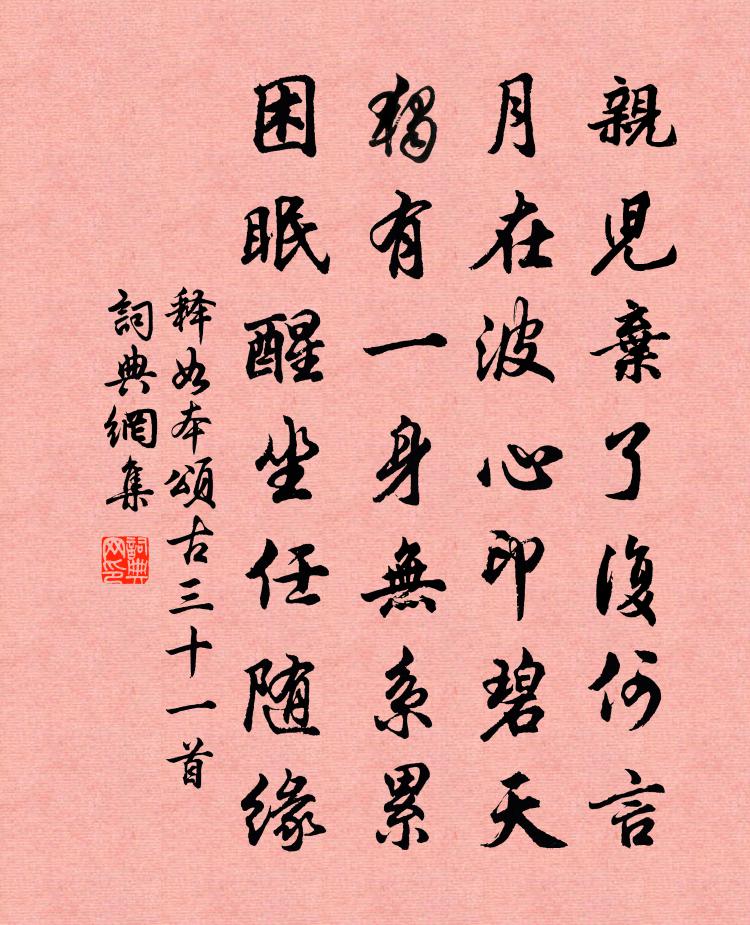 親児棄了復何言
月在波心印碧天
獨有一身無系累
困眠醒坐任随緣
释如本頌古三十一首
詞典網集
詞典网印